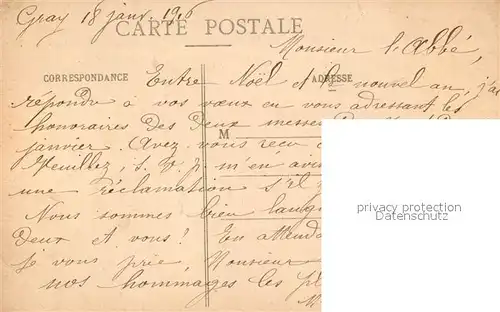 Gray 18 janv. 19
CARTE POSTALE
Monsieur l'Abbé,
CORRESPONDANCE
ADRESSE
Entre Noël et le nouvel an, j'ai
répondu à vos vœux en vous adressant les
honoraires des deux messes
M
janvier. Avez vous reçu
Veuillez, s. v. p. m'en avis
une réclamation s'il
Nous sommes bien
deux et vous! En attenda
je vous prie, Monsieur
nos hommages les pl
privacy protection
Datenschutz